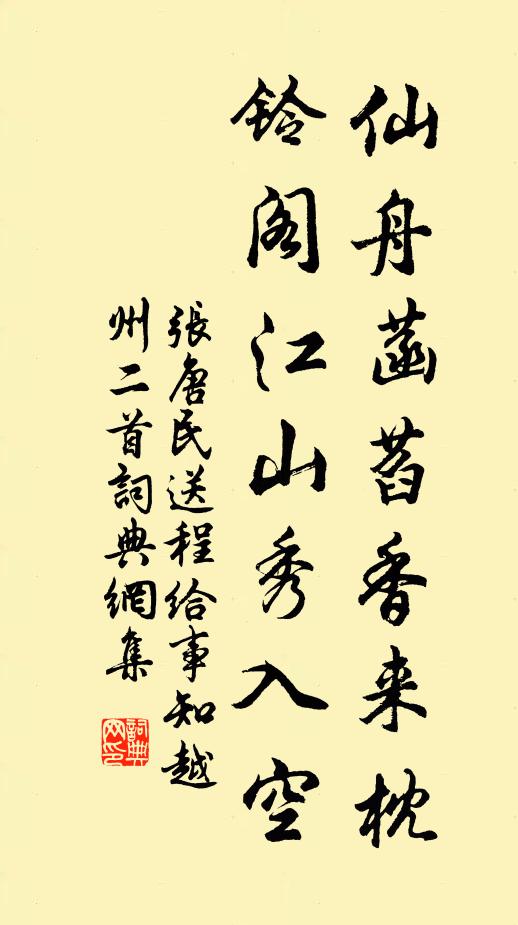 仙舟菡萏香来枕
铃阁江山秀入空
張唐民送程给事知越
州二首詞典網集
詞典
网印